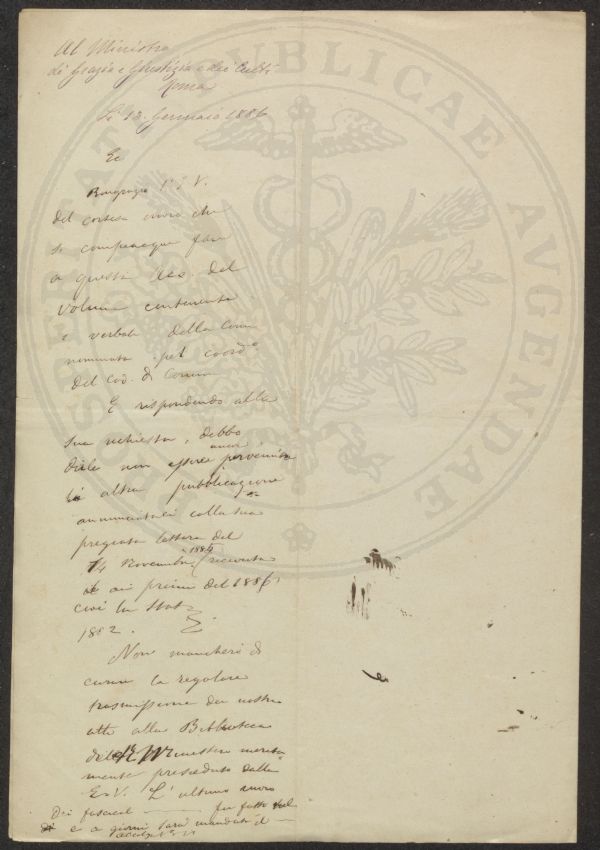 Al Ministro
di Grazia e Giustizia e dei Culti
Roma
Lì 13. Gennaio 1886
Ec
Ringrazio l'E. V.
del cortese invio che
si compiacque fare
a questa Acc. del
volume contenente
i verbali della Com
nominata pel coord°
del cod. di Comm
E rispondendo alla
sua richiesta, debbo
dirle non essere ancor pervenuta
la altra pubblicazione
annunziata colla sua
pregiata lettera del
14 Novembre 1885 (ricevuta
ai primi del 1886)
cioè la Stat
1882.
Non mancherò di
curare la regolare
trasmissione dei nostri
atti alla Biblioteca
del Ministero merita
mente presieduto dalla
E. V. L'ultimo invio
Dei fascicoli fu fatto nel
e a giorni sarà mandato il
PUBLICAE
AVGENDAE
PROSPERITATI